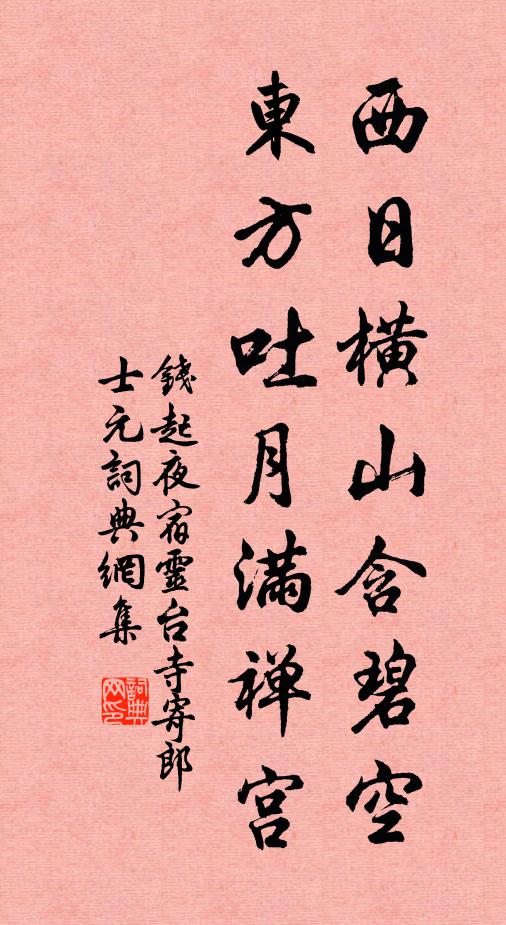 西日横山含碧空
東方吐月满禅宫
錢起夜宿靈台寺寄郎
士元詞典網集
詞典网印